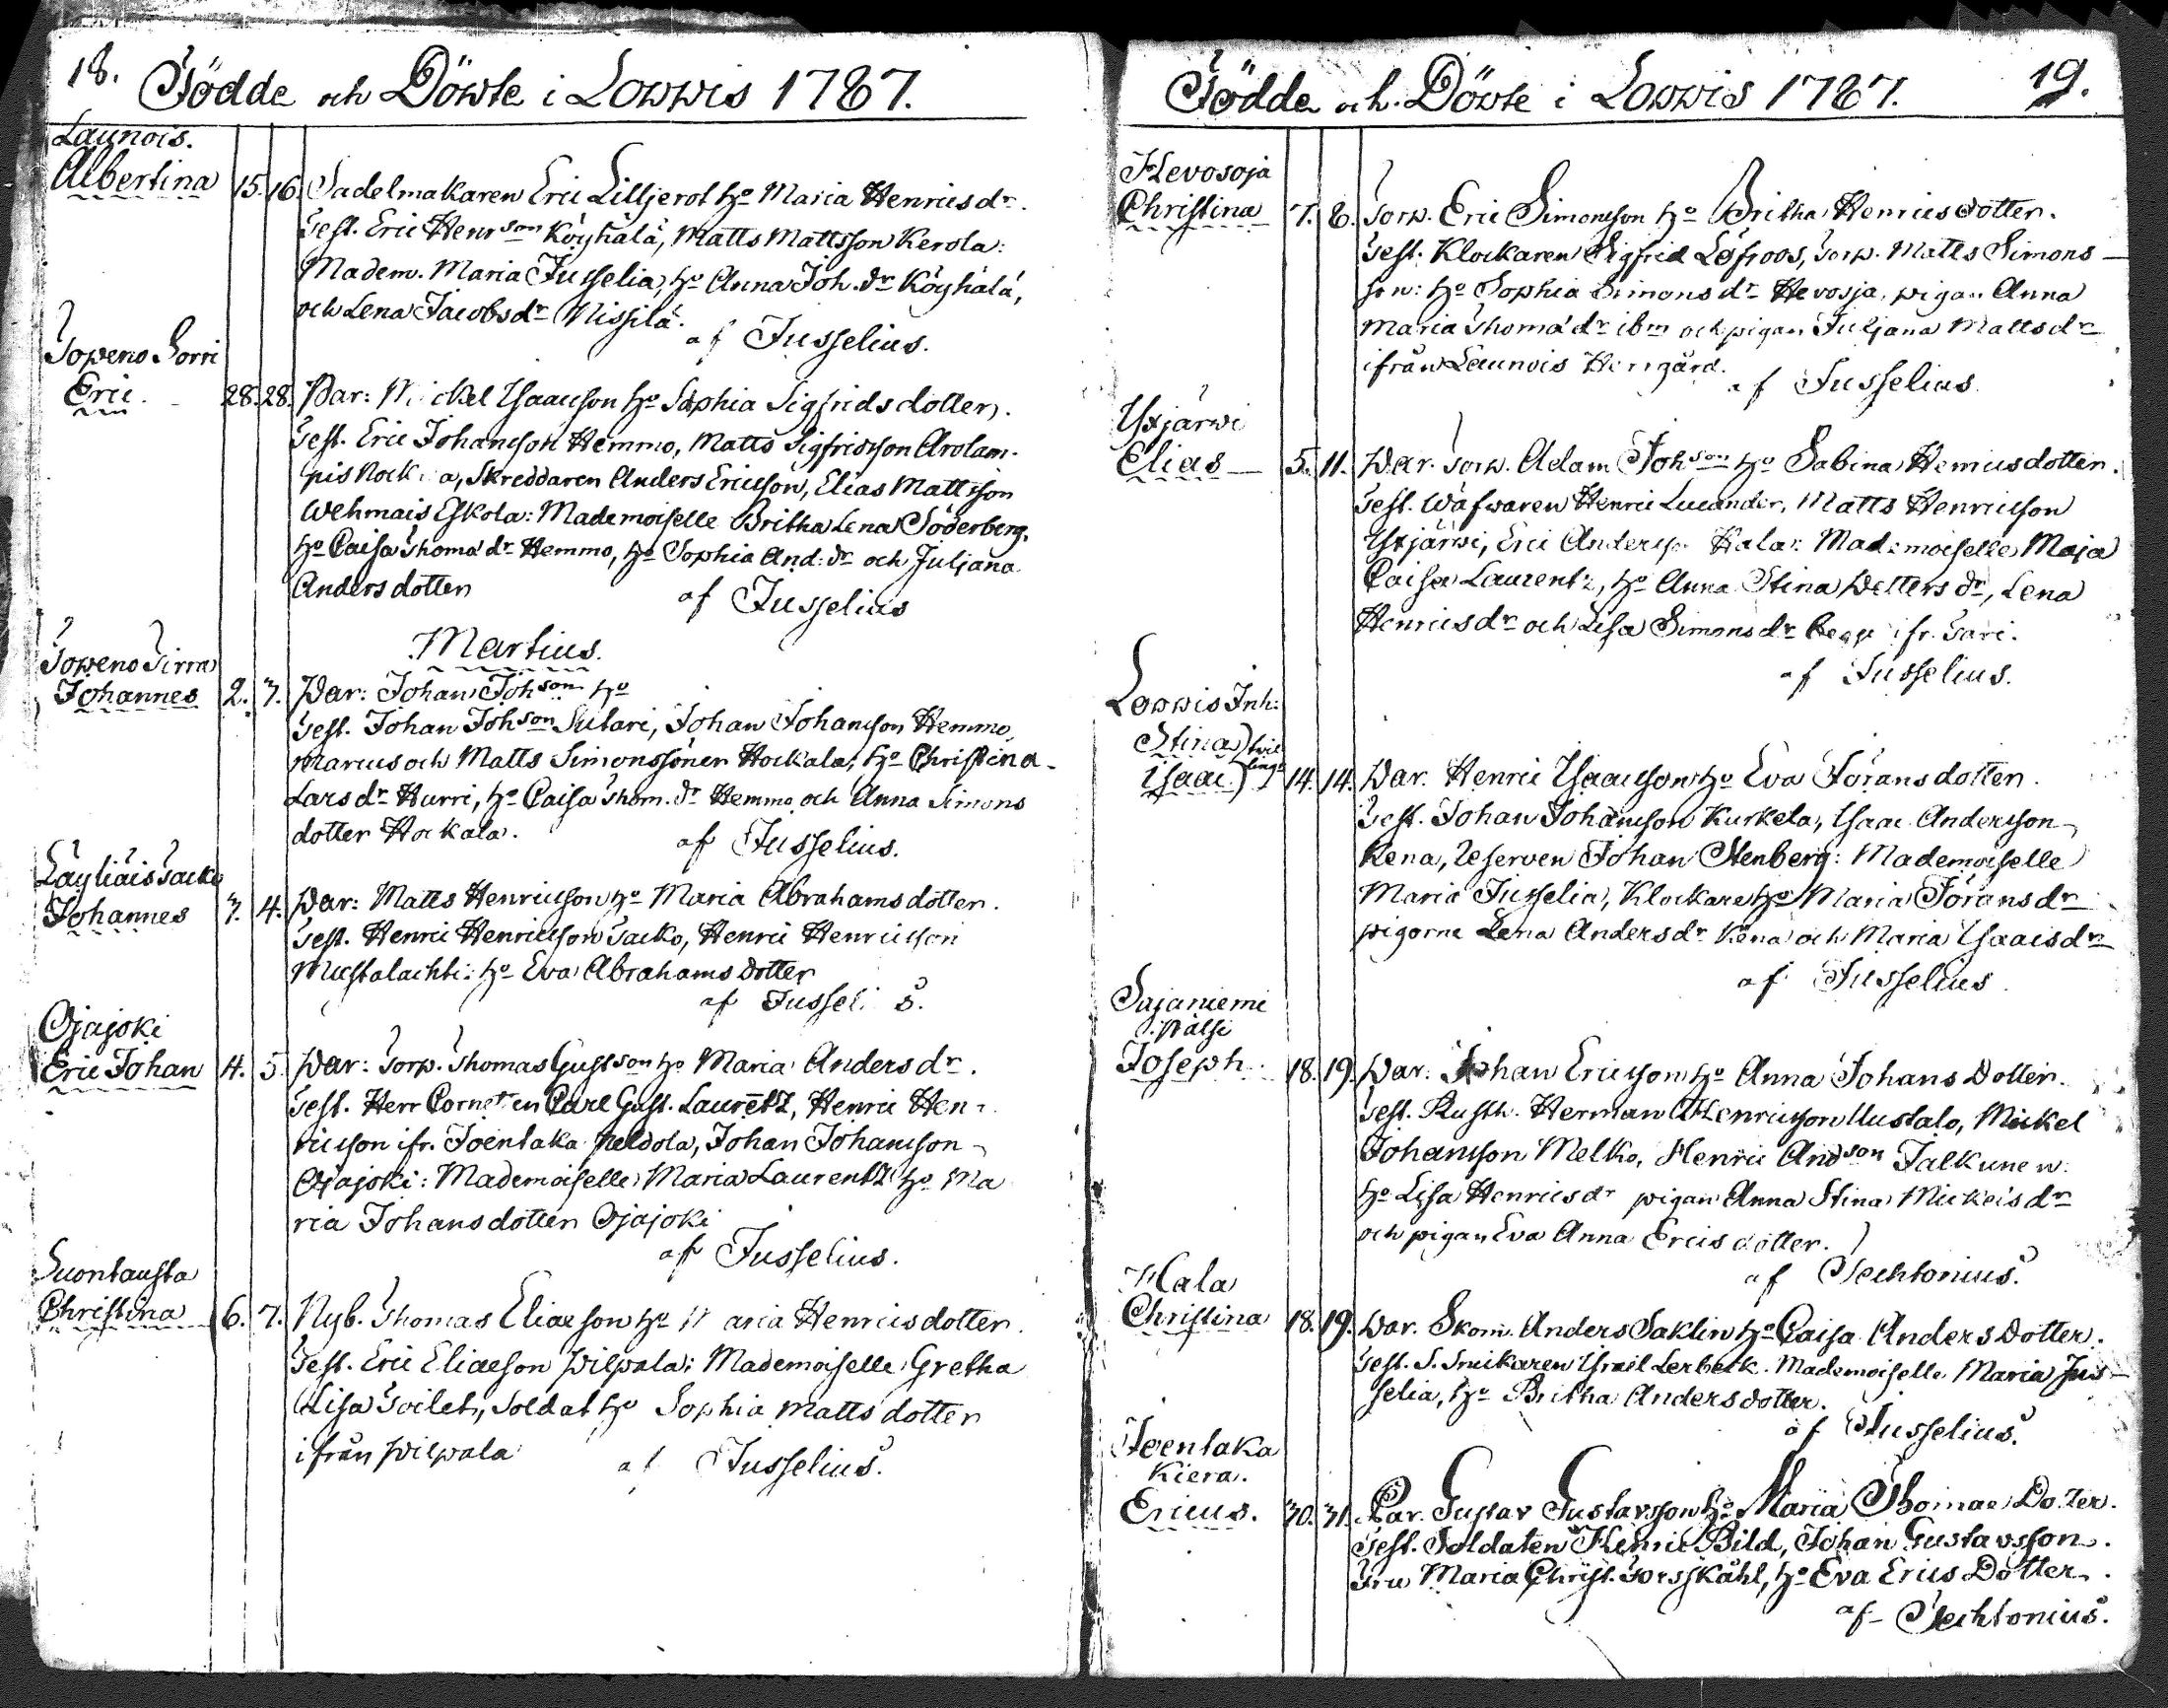 18. Födde och Döwte i Loppis 1787.
Launois.
Albertina 15. 16. Sadelmakaren Eric Lilljerot h:o Maria Henricsd:r
Test. Eric Henr:son Köyhälä, Matts Mattsson Kerola:
Madem. Maria Jusselia, h:o Anna Joh. d:r Köyhälä,
och Lena Jacobsd:r Nissilä.
af Jusselius.
Topeno Sorri
Eric. 28. 28. Par: Mickel Isaacsson h:o Sophia Sigfridsdotter.
Test. Eric Johansson Hemmo, Matts Sigfridsson Arolam-
Skreddaren Anders Ericsson, Elias Mattsson
Wehmais Eskola: Mademoiselle Britha Lena Söderberg,
h:o Caisa Thomæd:r Hemmo, h:o Sophia And: d:r och Juljana
Andersdotter
af Jusselius
Martius.
Topeno Pirra
Johannes 2. 3. Par: Johan Joh:son h:o
Test. Johan Joh:son Sutari, Johan Johansson Hemmo,
Marcus och Matts Simonssöner Hockala, h:o Christina
Larsd:r Hurri, h:o Caisa Thom. d:r Hemmo och Anna Simons
dotter Hockala.
af Jusselius.
Läyliäis Packo
Johannes 3. 4. Par: Matts Henricsson h:o Maria Abrahamsdotter.
Test. Henric Henricsson Packo, Henric Henricsson
Mustalachti: h:o Eva Abrahamsdotter
af Jusselius.
Ojajoki
Eric Johan 4. 5. Par: Torp. Thomas Gustson h:o Maria Andersd:r.
Test. Herr Corneten Carl Gust. Laurentz, Henric Hen-
ricsson ifr. Joenlaka Peldola, Johan Johansson
Ojajoki: Mademoiselle Maria Laurentz h:o Ma
ria Johansdotter Ojajoki
af Jusselius.
Luontausta
Christina 6. 7. Nyb. Thomas Eliaeson h:o Maria Henricsdotter.
Test. Eric Eliaeson Pilpala: Mademoiselle Gretha
Lisa Toilet, Soldat h:o Sophia Mattsdotter
ifrån Pilpala
af Jusselius.
Födde och Döwte i Loppis 1787. 19.
Hevosoja
Christina 7. 8. Torp. Eric Simonsson h:o Britha Henricsdotter.
Test. Klockaren Sigfrid Löfroos, Torp. Matts Simons
son: h:o Sophia Simonsd:r Hevosja, pigan Anna
Maria Thomæd:r ibm och pigan Juljana Mattsd:r
ifrån Launois Herrgård.
af Jusselius.
Yxjärwi
Elias 5. 11. Par. Torp. Adam Joh:son h:o Sabina Henricsdotter.
Test. Wäfwaren Henric Lucander, Matts Henricsson
Yxjärwi, Eric Andersson Hala: Mademoiselle Maja
Caisa Laurentz, h:o Anna Stina Pettersd:r, Lena
Henricsd:r och Lisa Simonsd:r ifr.
af Jusselius.
Loppis Inh:
Stina } twil
Isaac. } lingr 14. 14. Par. Henric Isaacsson h:o Eva Göransdotter.
Test. Johan Johansson Kurkela, Isaac Andersson
Kena, Reserven Johan Stenberg: Mademoiselle
Maria Jusselia, Klockare h:o Maria Göransd:r
pigorna Lena Andersd:r Kena och Maria Isaacsd:r
af Jusselius.
Sajaniemi
Pälsi
Joseph. 18. 19. Par: Johan Ericsson h:o Anna Johans Dotter.
Test. Rusth. Herman Henricsson Uustalo, Mickel
Johansson Melko, Henric And:son Jalkunen:
h:o Lisa Henricsd:r pigan Anna Stina Mickelsd:r
och pigan Eva Anna Ericsdotter.
af Techtonius.
Hala
Christina 18. 19. Par. Skom. Anders Saklin h:o Caisa Anders Dotter.
Test. S. Snickaren Israel Lerbeck. Mademoiselle Maria Jus-
selia, h:o Britha Andersdotter.
af Jusselius.
Joenlaka
Kiera.
Ericus. 30. 31. Par. Gustav Gustavsson h:o Maria Thomae Dotter.
Test. Soldaten Henric Bild, Johan Gustavsson.
Fru Maria Christ. Forsskåhl, h:o Eva Erics Dotter.
af Techtonius.